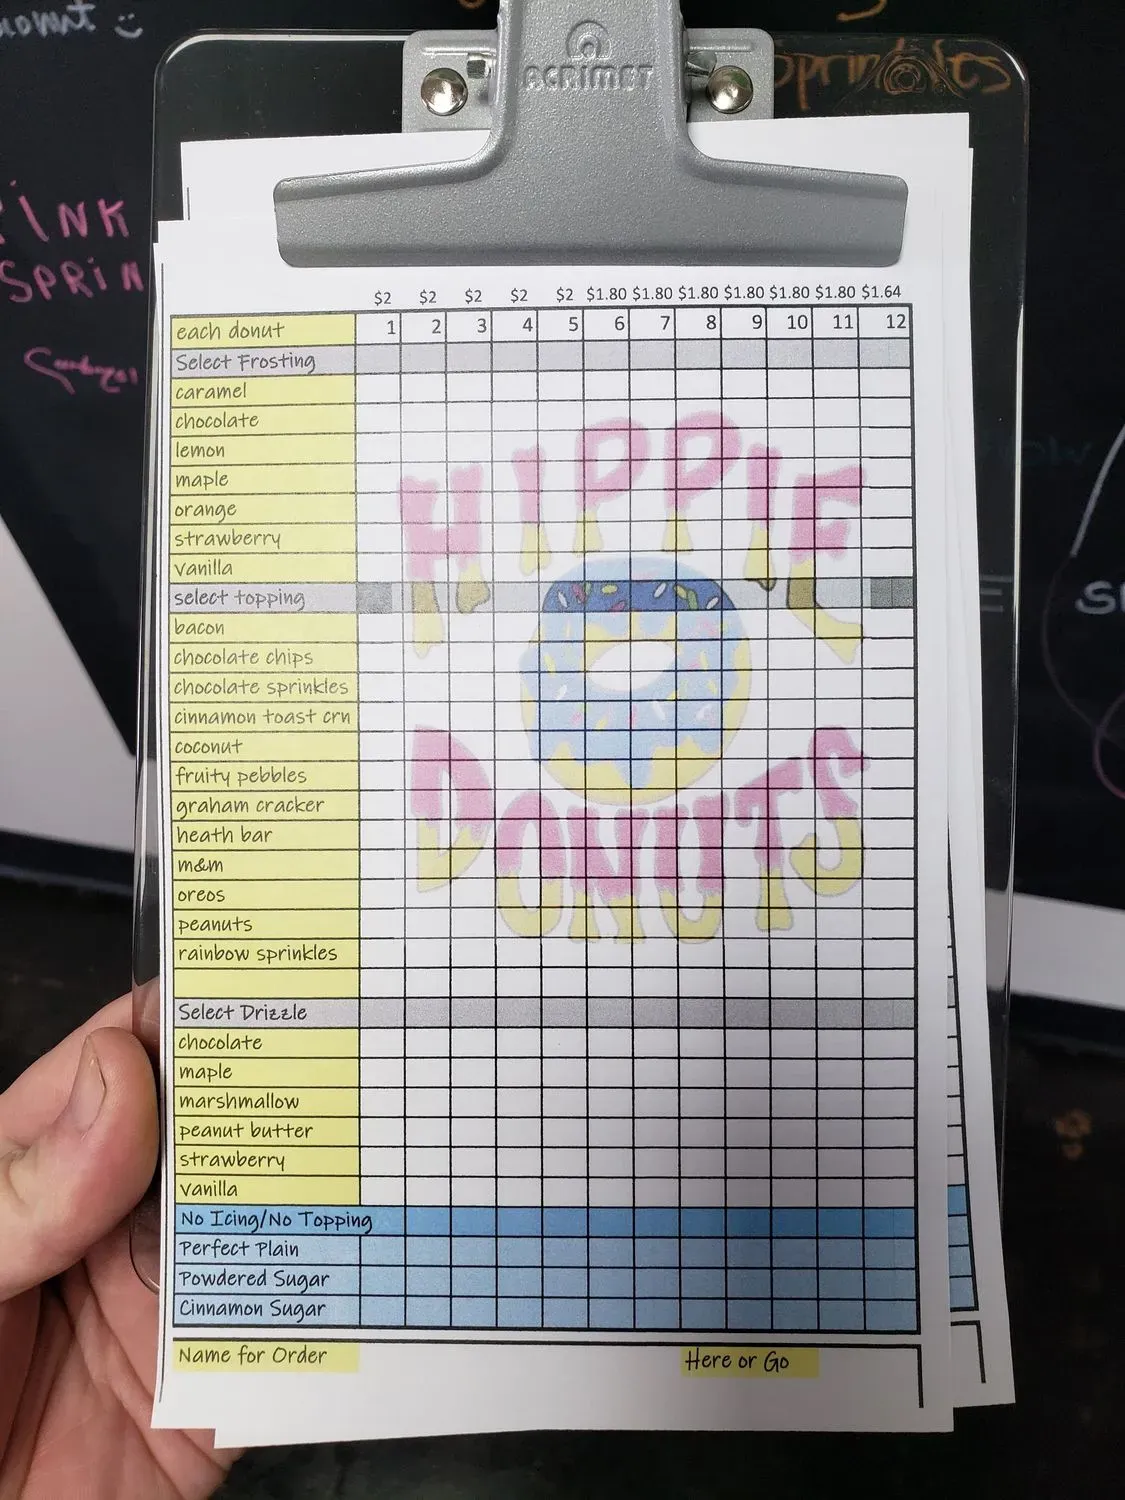 ount
ACRIMET
Sprinkles
PINK
SPRIN
$2 $2 $2 $2 $2 $1.80 $1.80 $1.80 $1.80 $1.80 $1.80 $1.64
each donut 1 2 3 4 5 6 7 8 9 10 11 12
Select Frosting
caramel
chocolate
lemon
maple
orange
strawberry
vanilla
select topping
bacon
chocolate chips
chocolate sprinkles
cinnamon toast crn
coconut
fruity pebbles
graham cracker
heath bar
m&m
oreos
peanuts
rainbow sprinkles
Select Drizzle
chocolate
maple
marshmallow
peanut butter
strawberry
vanilla
No Icing/No Topping
Perfect Plain
Powdered Sugar
Cinnamon Sugar
Name for Order Here or Go
HIPPIE
DONUTS